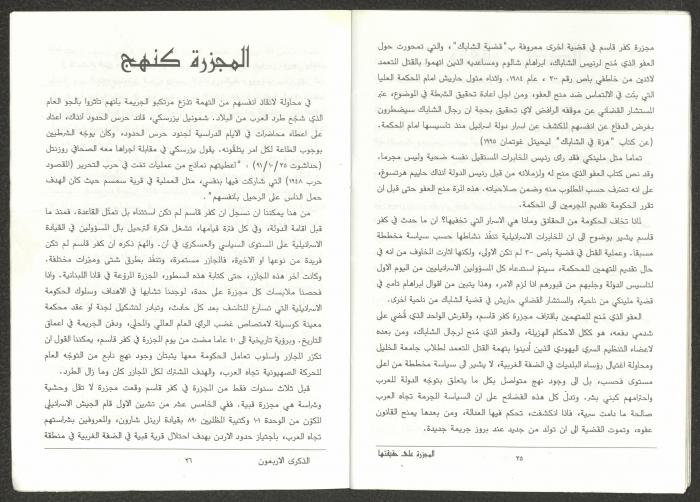 مجزرة كفر قاسم في قضية اخرى معروفة ب"قضية الشاباك"، والتي تمحورت حول
العفو الذي مُنح لرئيس الشاباك، ابراهام شالوم ومساعديه الذين اتهموا بالقتل المتعمد
لاثنين من خاطفي باص رقم ٣٠٠، عام ١٩٨٤. واثناء مثول حاريش امام المحكمة العليا
التي بتّت في الالتماس ضد منح العفو، ومن اجل اعادة تحقيق الشرطة في الموضوع، عبّر
المستشار القضائي عن موقفه الرافض لاي تحقيق بحجة ان رجال الشاباك سيضطرون
بغرض الدفاع عن انفسهم للكشف عن اسرار دولة اسرائيل منذ تأسيسها امام المحكمة.
(عن كتاب "هزة في الشاباك" ليحيئل غوتمان ١٩٩٥)
تماما مثل ملينكي فقد رأى رئيس المخابرات المستقبل نفسه ضحية وليس مجرما.
وقد نص كتاب العفو الذي منح له ولزملائه من قبل رئيس الدولة انذاك حاييم هرتسوغ،
على انه تصرّف حسب المطلوب منه وضمن صلاحياته. هذه المرة منح العفو حتى قبل ان
تقرر الحكومة تقديم المجرمين الى المحكمة.
لماذا تخاف الحكومة من الحقائق وماذا هي الاسرار التي تخفيها؟ ان ما حدث في كفر
قاسم يشير بوضوح الى ان المخابرات الاسرائيلية تنفّذ نشاطها حسب سياسة مخططة
مسبقا. وعملية القتل في قضية باص ٣٠٠ لم تكن الاولى، ولكنها اثارت المخاوف من انه في
حال تقديم المتهمين للمحكمة، سيتم استدعاء كل المسؤولين الاسرائيليين من اليوم الاول
لتأسيس الدولة وجلبهم من قبورهم اذا لزم الامر، وهذا يتبين من اقوال ابراهام تامير في
قضية ملينكي من ناحية، والمستشار القضائي حاريش في قضية الشاباك من ناحية اخرى.
العفو الذي مُنح للمتهمين باقتراف مجزرة كفر قاسم، والقرش الواحد الذي قُضي على
شدمي دفعه، هو ككل الاحكام الهزيلة، والعفو الذي مُنح لرجال الشاباك، ومن بعده
لاعضاء التنظيم السري اليهودي الذين أدينوا بتهمة القتل المتعمد لطلاب جامعة الخليل
ومحاولة اغتيال رؤساء البلديات في الضفة الغربية، لا يشير الى سياسة مخططة من اعلى
مستوى فحسب، بل الى وجود نهج متواصل بكل ما يتعلق بتوجّه الدولة للعرب
واحترامهم كبني بشر. وتدل كل هذه الفضائح على ان السياسة المجرمة تجاه العرب
صالحة ما دامت سرية، فاذا انكشفت، تحكم فيها العدالة، ومن بعدها يمنح القانون
عفوه، وتموت القضية الى ان تولد من جديد عند بروز جريمة جديدة.
المجزرة على حقيقتها
٢٥
المجزرة كنهج
في محاولة لانقاذ انفسهم من التهمة تذرّع مرتكبو الجريمة بانهم تأثروا بالجو العام
الذي شجّع طرد العرب من البلاد. شموئيل بزرسكي، قائد حرس الحدود انذاك، اعتاد
على اعطاء محاضرات في الايام الدراسية لجنود حرس الحدود، وكان يوجّه الشرطيين
بوجوب الطاعة لكل امر يتلقونه. يقول بزرسكي في مقابلة اجراها معه الصحافي روزنتل
(حداشوت ٩١/١٠/٢٥): "اعطيتهم نماذج من عمليات تمّت في حرب التحرير (المقصود
حرب ١٩٤٨) التي شاركت فيها بنفسي، مثل العملية في قرية سمسم حيث كان الهدف
حمل الناس على الرحيل بأنفسهم".
من هنا يمكننا ان نسجل ان كفر قاسم لم تكن استثناء بل تمثل القاعدة. فمنذ ما
قبل اقامة الدولة، وفي كل فترة قيامها، تشغل فكرة الترحيل بال المسؤولين في القيادة
الاسرائيلية على المستوى السياسي والعسكري في ان. والمهم ذكره ان كفر قاسم لم تكن
فريدة من نوعها او الاخيرة، فالمجازر مستمرة، وتنفّذ بطرق شتى ومبرّرات مختلفة.
وكانت آخر هذه المجازر، حتى كتابة هذه السطور، المجزرة المروّعة في قانا اللبنانية. واذا
فحصنا ملابسات كل مجزرة على حدة، لوجدنا تشابها في الاهداف وسلوك الحكومة
الاسرائيلية التي تسارع للتأسف بعد كل حادث، وتبادر لتشكيل لجنة او عقد محكمة
معينة كوسيلة لامتصاص غضب الراي العام العالمي والمحلي، ودفن الجريمة في اعماق
التاريخ. وبرؤية تاريخية الى ٤٠ عاما مضت من يوم المجزرة في كفر قاسم، يمكننا القول ان
تكرّر المجازر واسلوب تعامل الحكومة معها يثبتان وجود نهج نابع من التوجّه العام
للحركة الصهيونية تجاه العرب، والهدف المشترك لكل المجازر كان وما زال الطرد.
قبل ثلاث سنوات فقط من المجزرة في كفر قاسم وقعت مجزرة لا تقل وحشية
وشراسة هي مجزرة قبية. ففي الخامس عشر من تشرين الاول قام الجيش الاسرائيلي
المكوّن من الوحدة ١٠١ وكتيبة المظليين ٨٩٠ بقيادة اريئل شارون، والمعروفين بشراستهم
تجاه العرب، باجتياز حدود الاردن بهدف احتلال قرية قبية في الضفة الغربية في منطقة
الذكرى الاربعون
٢٦